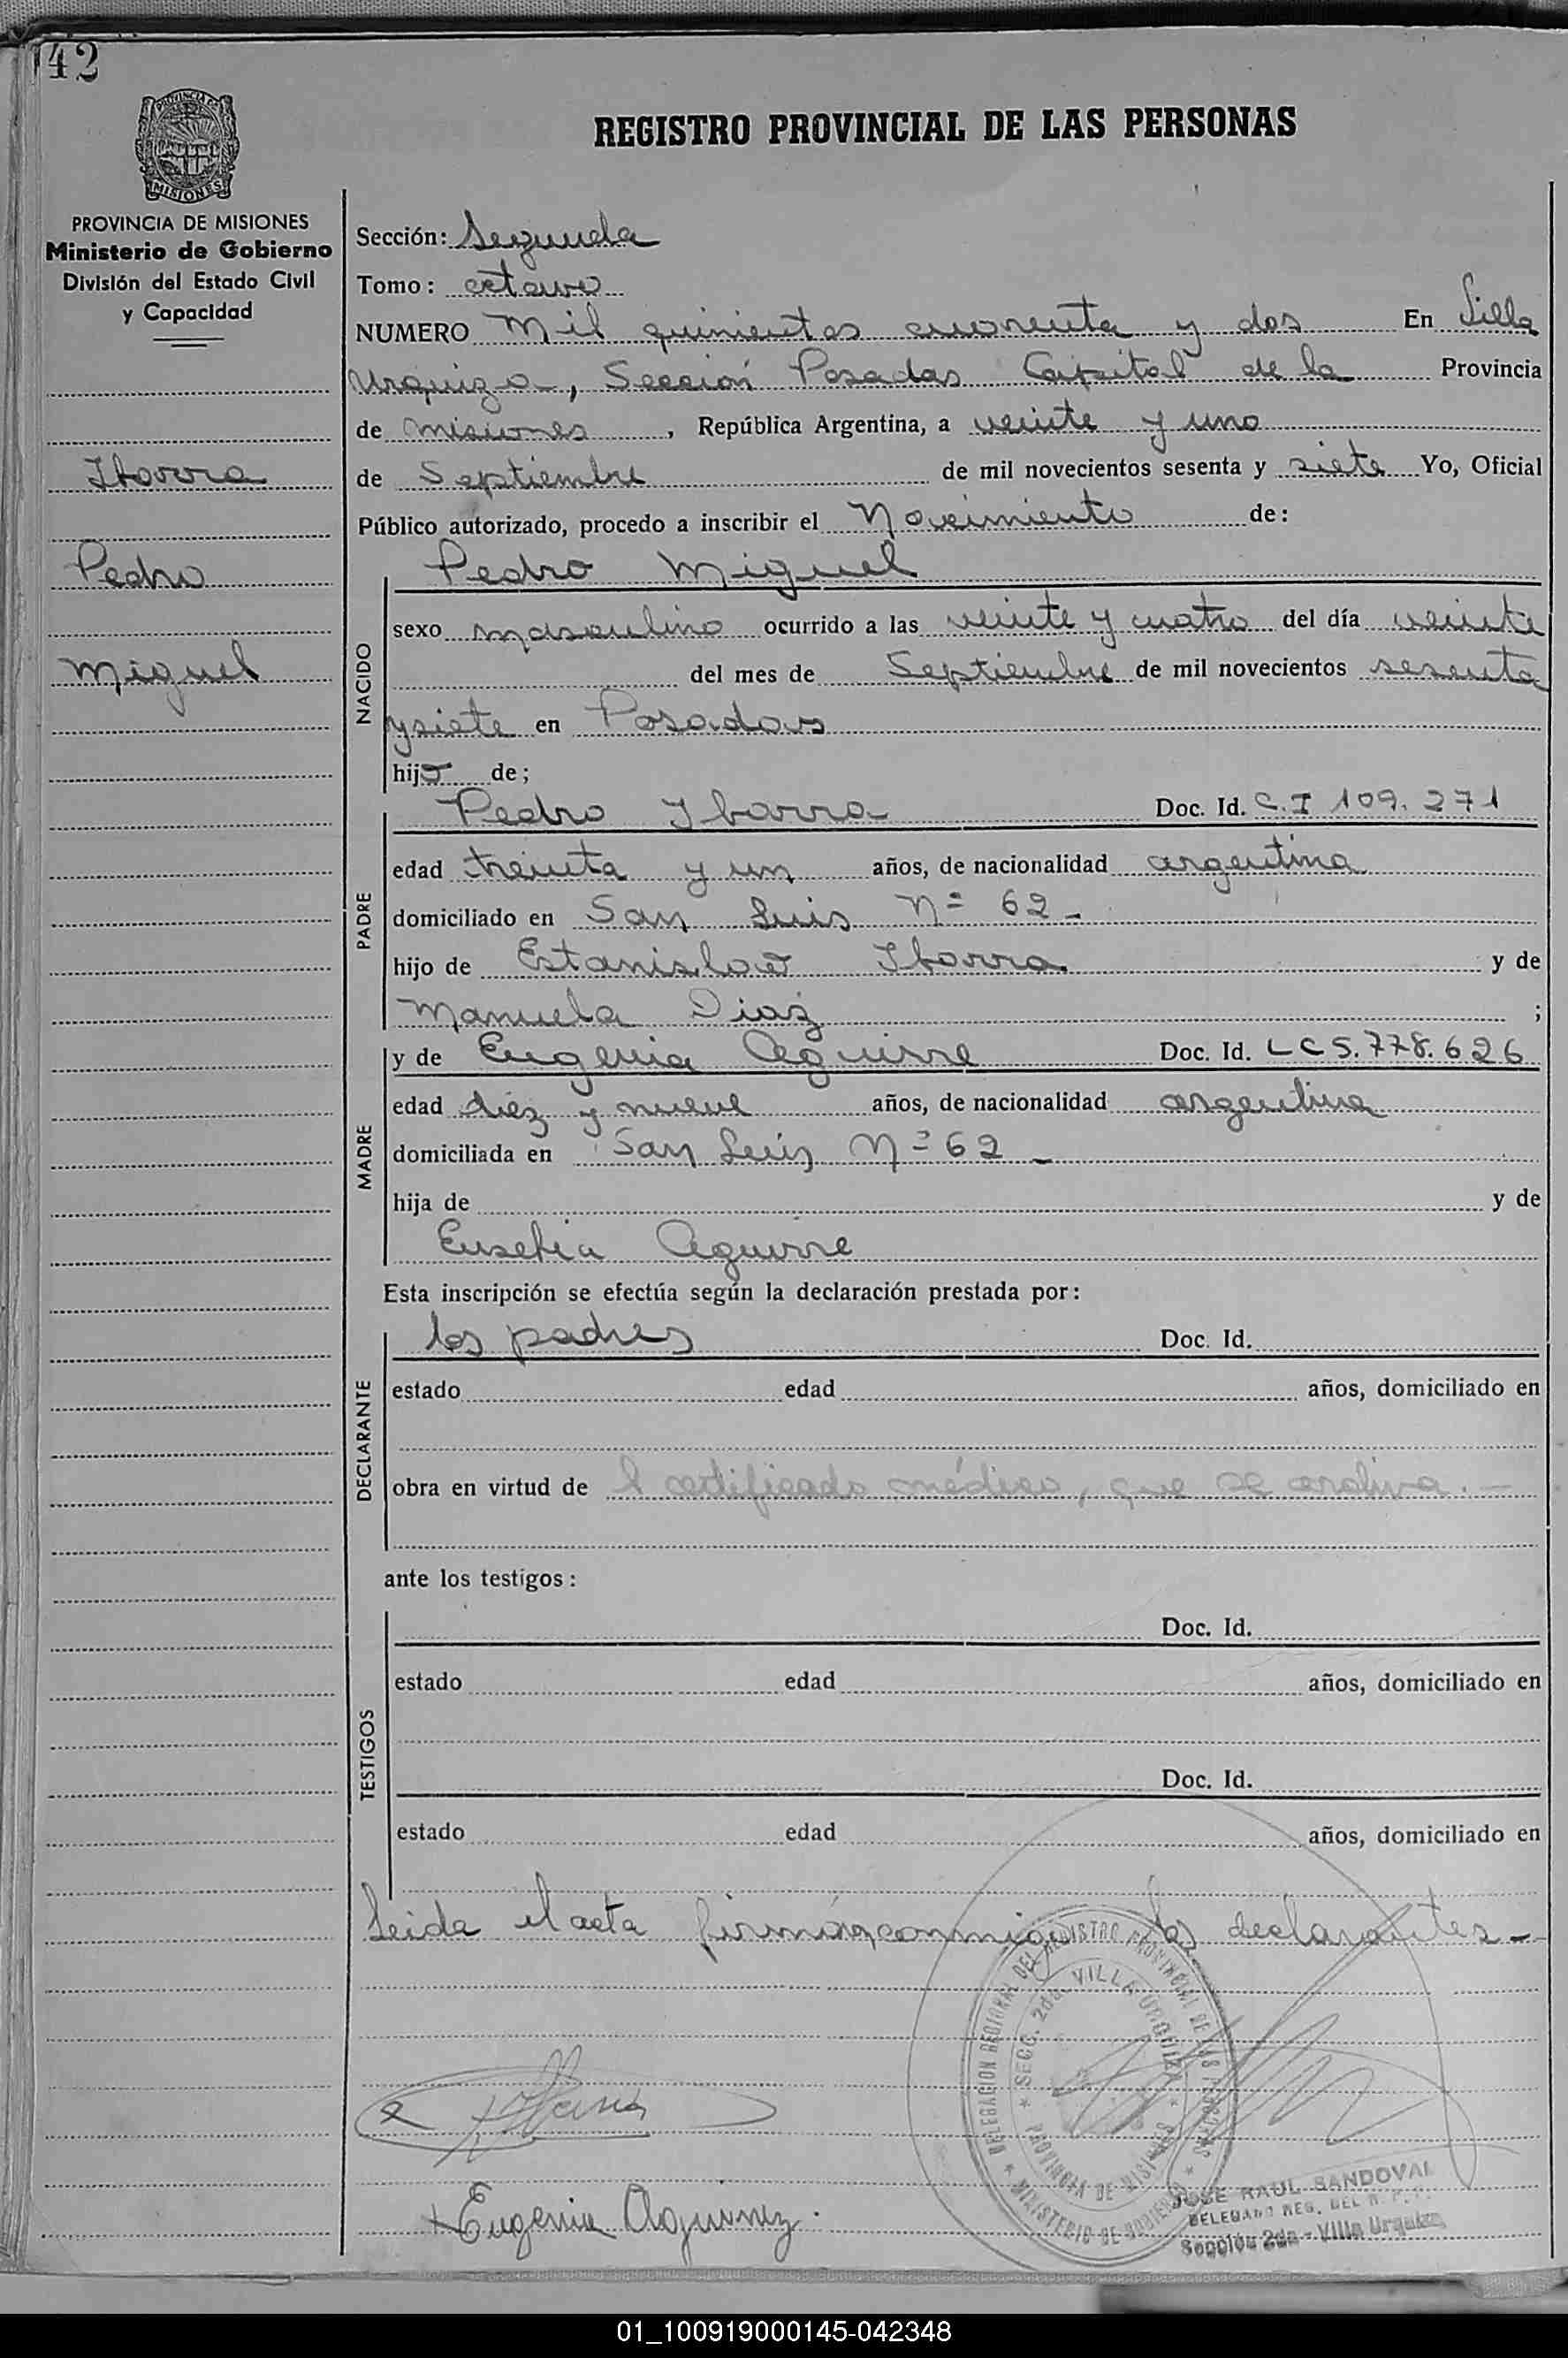 42
PROVINCIA DE
MISIONES
REGISTRO PROVINCIAL DE LAS PERSONAS
PROVINCIA DE MISIONES
Ministerio de Gobierno
División del Estado Civil
y Capacidad
Ibarra
Pedro
Miguel
Sección: Segunda
Tomo: octavo
NUMERO Mil quinientos cuarenta y dos En Villa
Urquiza, Sección Posadas Capital de la Provincia
de misiones, República Argentina, a veinte y uno
de Septiembre de mil novecientos sesenta y siete Yo, Oficial
Público autorizado, procedo a inscribir el Nacimiento de:
Pedro Miguel
NACIDO
sexo masculino ocurrido a las veinte y cuatro del día veinte
del mes de Septiembre de mil novecientos sesenta
y siete en Posadas
hijo de;
PADRE
Pedro Ibarra Doc. Id. C.I 109.271
edad treinta y un años, de nacionalidad argentina
domiciliado en San Luis Nº 62 -
hijo de Estanislao Ibarra y de
Manuela Diaz ;
MADRE
y de Eugenia Aguirre Doc. Id. LC 5.778.626
edad diez y nueve años, de nacionalidad argentina
domiciliada en San Luis Nº 62 -
hija de y de
Eusebia Aguirre
Esta inscripción se efectúa según la declaración prestada por:
DECLARANTE
los padres Doc. Id.
estado edad años, domiciliado en
obra en virtud de l certificado médico, que se archiva. -
ante los testigos:
TESTIGOS
Doc. Id.
estado edad años, domiciliado en
Doc. Id.
estado edad años, domiciliado en
Leida el acta firman conmigo los declarantes -
DELEGACION REGIONAL DEL REGISTRO PROVINCIAL DE LAS PERSONAS
* SECC. 2da. VILLA URQUIZA *
PROVINCIA DE MISIONES
* MINISTERIO DE GOBIERNO *
Eugenia Aguirrez.
JOSE RAUL SANDOVAL
DELEGADO REG. DEL R. P. P.
Sección 2da - Villa Urquiza
01_100919000145-042348